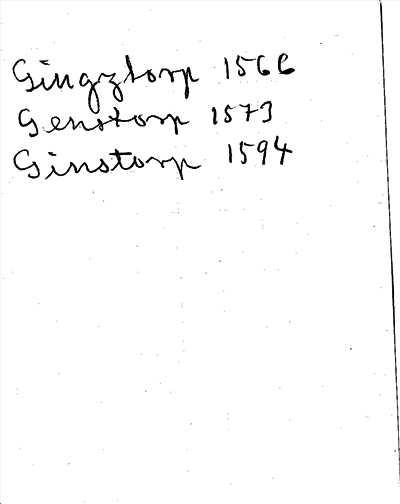 Gingztorp 1566
Genstorp 1573
Ginstorp 1594